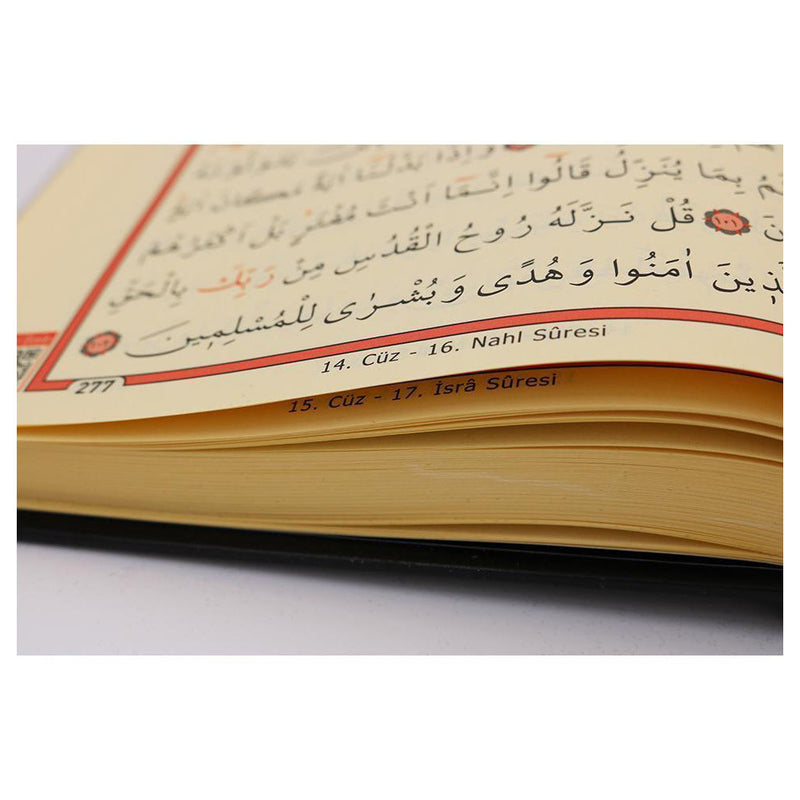 وَاِذَا بَدَّلْنَٓا اٰيَةً مَكَانَ
بِمَا يُنَزِّلُ قَالُٓوا اِنَّمَٓا اَنْتَ مُفْتَرٍ بَلْ اَكْثَرُهُمْ
١٠١ قُلْ نَزَّلَهُ رُوحُ الْقُدُسِ مِنْ رَبِّكَ بِالْحَقِّ
ـذ۪ينَ اٰمَنُوا وَهُدًى وَبُشْرٰى لِلْمُسْلِم۪ينَ ١٠٢
14. Cüz - 16. Nahl Sûresi
277
15. Cüz - 17. İsrâ Sûresi